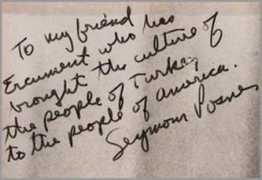 To my friend
Ercument who has
brought the culture of
the people of Turkey
to the people of america.
Seymour Posner